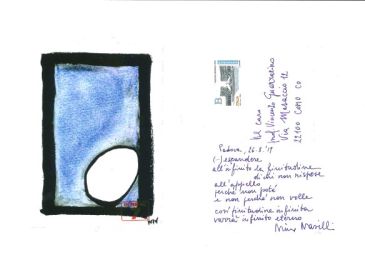 Al caro
Prof. Vincenzo Guarracino
Via Masaccio 12
22100 COMO CO
Padova, 26.8.19
(-) espandere
all'infinito la finitudine
di chi non rispose
all'appello
perché non poté
e non perché non volle
così finitudine infinita
varrà infinito eterno